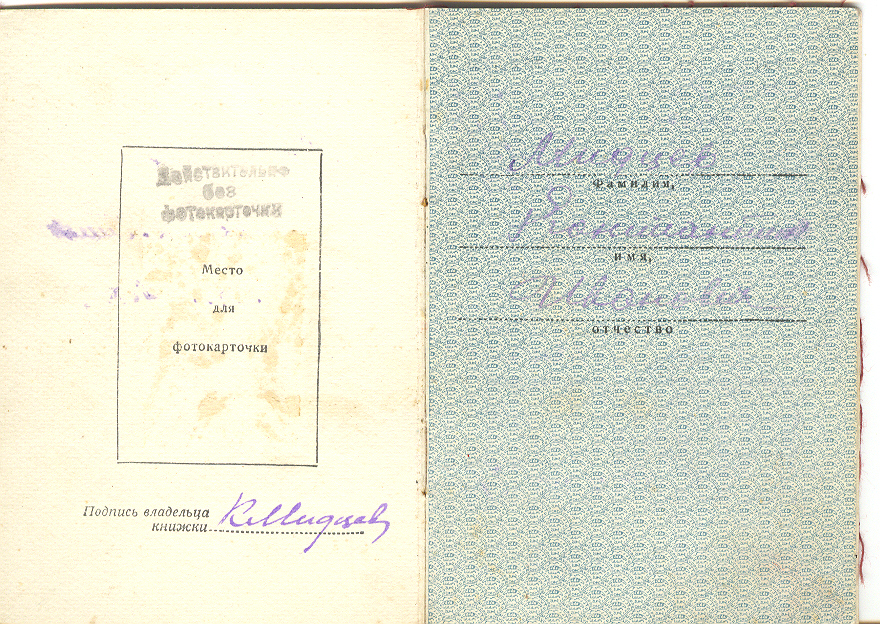 Действительно
без
фотокарточки
Место
для
фотокарточки
Подпись владельца
книжки К Мидцев
Мидцев
Фамилия,
Константин
имя,
Иванович
отчество